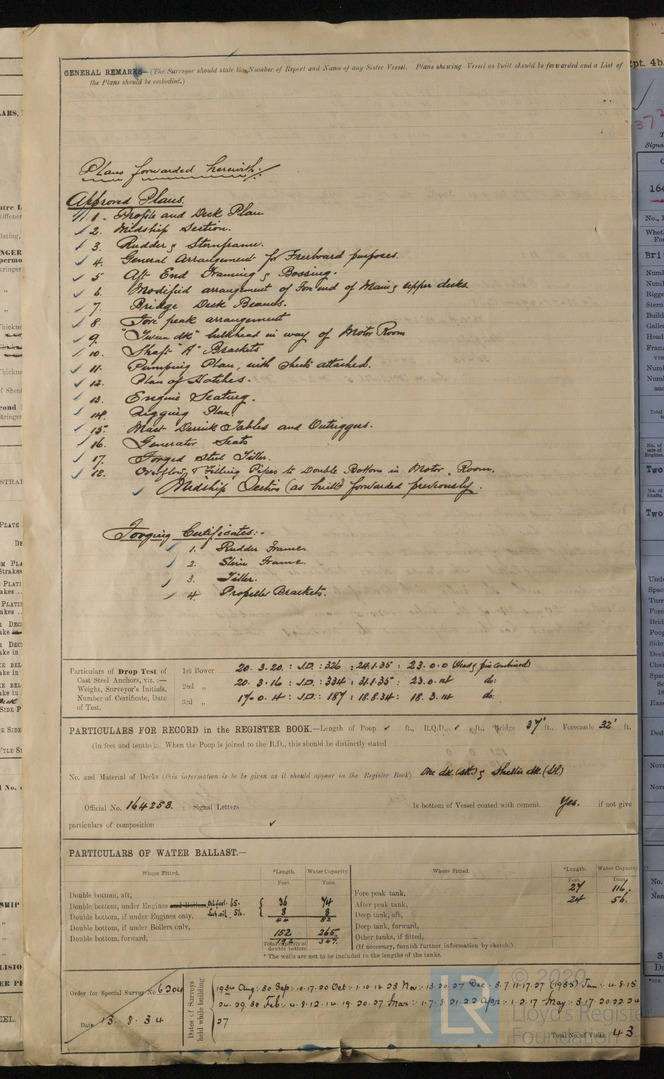 GENERAL REMARKS—(The Surveyor should state the Number of Report and Name of any Sister Vessel. Plans showing Vessel as built should be forwarded and a List of
the Plans should be embodied.)
Plans forwarded herewith:-
Approved Plans.
1. Profile and Deck Plan
2. Midship Section.
3. Rudder & Sternframe.
4. General Arrangement for Freeboard purposes.
5 Aft End Framing & Bossing.
6. Modified arrangement of For end of Main & upper decks.
7. Bridge Deck Beams.
8 Fore peak arrangement
9. "Tween dk" bulkhead in way of Motor Room
10. Shaft "A" Brackets
11. Pumping Plan, with sheet attached.
12. Plan of Hatches.
13. Engine Seating.
14. Rigging Plan
15. Mast Derrick Tables and Outriggers.
16. Generator Seats
17. Forged Steel Tiller.
18. Overflow & Filling Pipes to Double Bottom in Motor Room.
Midship Section (as built) forwarded previously.
Forging Certificates:-
1. Rudder Frame.
2. Stern Frame.
3. Tiller.
4. Propeller Brackets.
Particulars of Drop Test of
Cast Steel Anchors, viz.:—
Weight, Surveyor's Initials,
Number of Certificate, Date
of Test.
1st Bower 20.3.20. : J.D. : 326 : 24.1.35 : 23.0.0
2nd „ 20.3.16 : J.D. : 334 : 31.1.35 : 23.0.14 do:
3rd „ 17.0.4 : J.D. : 187 : 18.8.34 : 18.3.14 do:
PARTICULARS FOR RECORD in the REGISTER BOOK.—Length of Poop ft., R.Q.D. ft., Bridge 37' ft., Forecastle 32' ft.
(in feet and tenths). When the Poop is joined to the B.D., this should be distinctly stated
No. and Material of Decks (this information is to be given as it should appear in the Register Book) One dk (stl) & Shelter dk (stl)
Official No. 164258. Signal Letters Is bottom of Vessel coated with cement Yes. if not give
particulars of composition
PARTICULARS OF WATER BALLAST.—
Where Fitted. *Length. Water Capacity. Where Fitted. *Length. Water Capacity
Feet. Tons. Feet. Tons.
Double bottom, aft, Fore peak tank, 27 116
Double bottom, under Engines 36 74 After peak tank, 24 56
Double bottom, if under Engines only, 8 8 Deep tank, aft,
Double bottom, if under Boilers only, Deep tank, forward,
Double bottom, forward, 152 265 Other tanks, if fitted,
Total capacity of double bottom 347
(If necessary, furnish further information by sketch.)
* The walls are not to be included in the lengths of the tanks.
Order for Special Survey No. 6204
Date 13.8.34
Dates of Surveys held while building
1934 Aug: 30 Sep: 10.17.20 Oct: 1.10.12 23 Nov: 13.20.27 Dec: 3.7.11.17.27 (1935) Jan: 4.8.15
24.29.30 Feb: 4.8.12.14.19.20.27 Mar: 1.7.8.21.22 Apr: 1.2.17 May: 3.17 20.22.24
27
Total No. of Visits 43
© 2020
LR
Lloyd's Register
Foundation